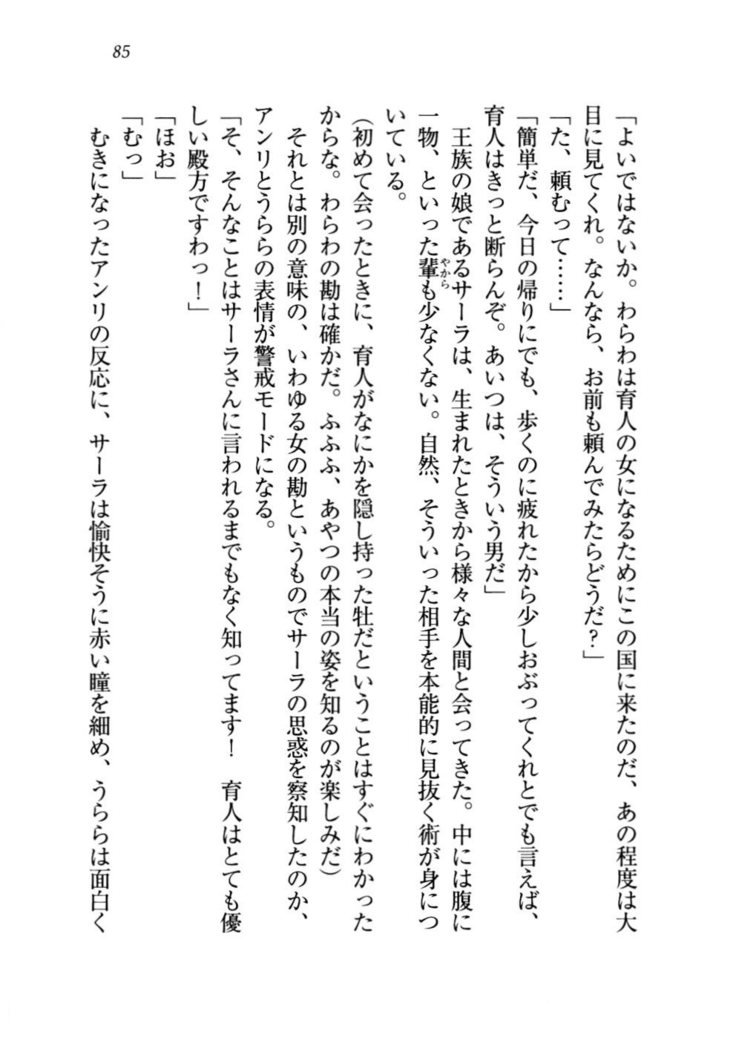 85
「よいではないか。わらわは育人の女になるためにこの国に来たのだ、あの程度は大
目に見てくれ。なんなら、お前も頼んでみたらどうだ？」
「た、頼むって……」
「簡単だ、今日の帰りにでも、歩くのに疲れたから少しおぶってくれとでも言えば、
育人はきっと断らんぞ。あいつは、そういう男だ」
　王族の娘であるサーラは、生まれたときから様々な人間と会ってきた。中には腹に
一物、といった輩やからも少なくない。自然、そういった相手を本能的に見抜く術が身につ
いている。
（初めて会ったときに、育人がなにかを隠し持った牡だということはすぐにわかった
からな。わらわの勘は確かだ。ふふふ、あやつの本当の姿を知るのが楽しみだ）
　それとは別の意味の、いわゆる女の勘というものでサーラの思惑を察知したのか、
アンリとうららの表情が警戒モードになる。
「そ、そんなことはサーラさんに言われるまでもなく知ってます！　育人はとても優
しい殿方ですわっ！」
「ほお」
「むっ」
　むきになったアンリの反応に、サーラは愉快そうに赤い瞳を細め、うららは面白く